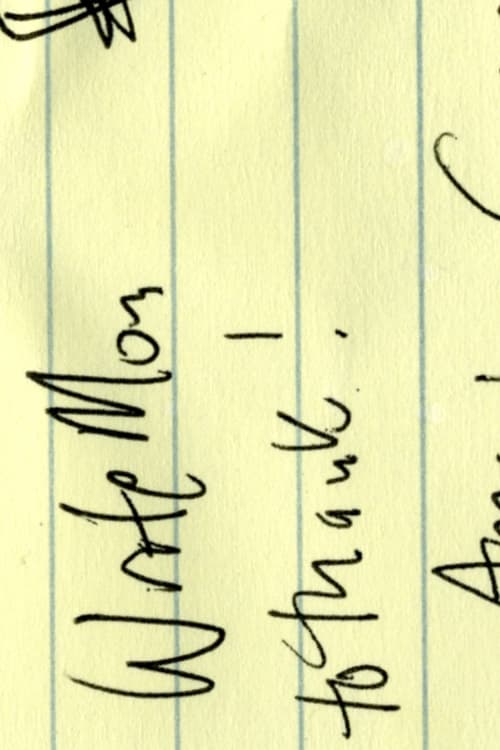 Write Mom
to thank!